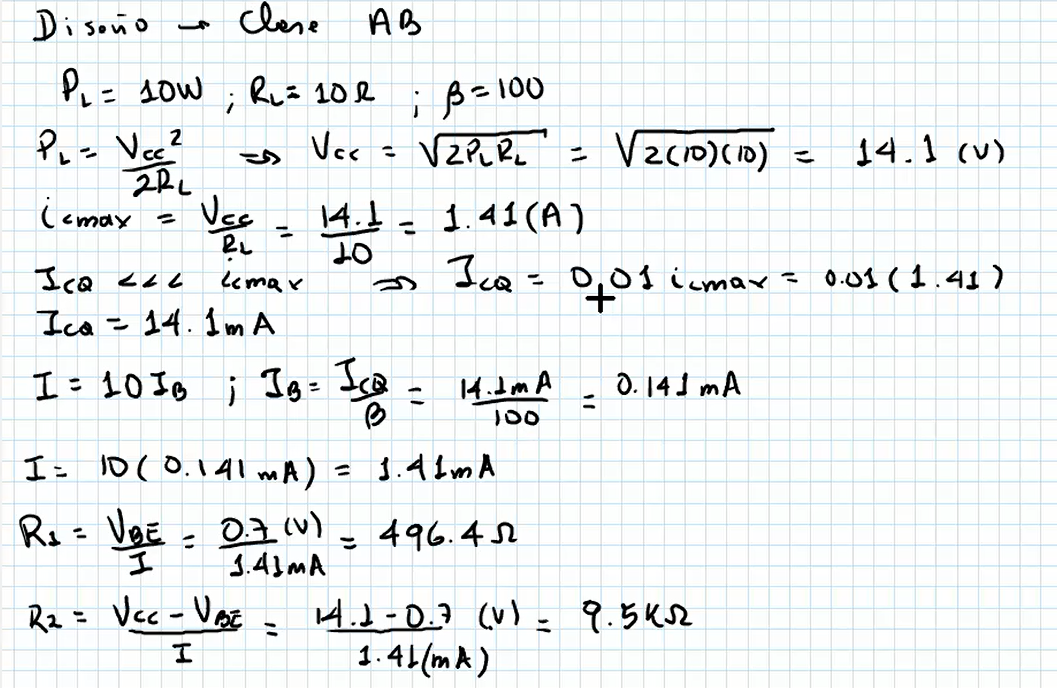 Diseño → Clase AB
P_L = 10W ; R_L = 10Ω ; β = 100
P_L = Vcc²/2R_L ⇒ Vcc = √(2P_L R_L) = √(2(10)(10)) = 14.1 (V)
icmax = Vcc/R_L = 14.1/10 = 1.41 (A)
I_CQ <<< icmax ⇒ I_CQ = 0.01 icmax = 0.01 (1.41)
I_CQ = 14.1mA
I = 10I_B ; I_B = I_CQ/β = 14.1mA/100 = 0.141 mA
I = 10 (0.141 mA) = 1.41mA
R1 = V_BE/I = 0.7 (V)/1.41mA = 496.4Ω
R2 = Vcc - V_BE/I = 14.1 - 0.7 (V)/1.41(mA) = 9.5KΩ